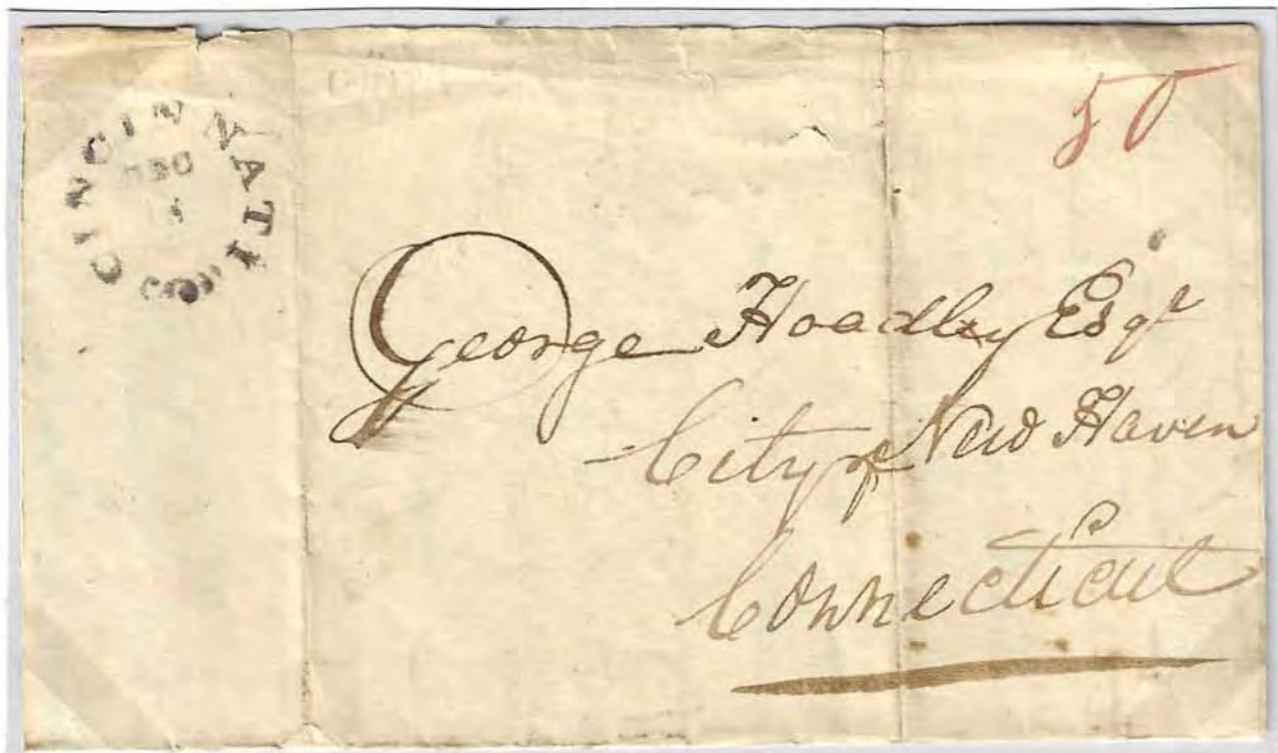 CINCINNATI O
DEC
50
George Hoadley Esqr
City of New Haven
Connecticut